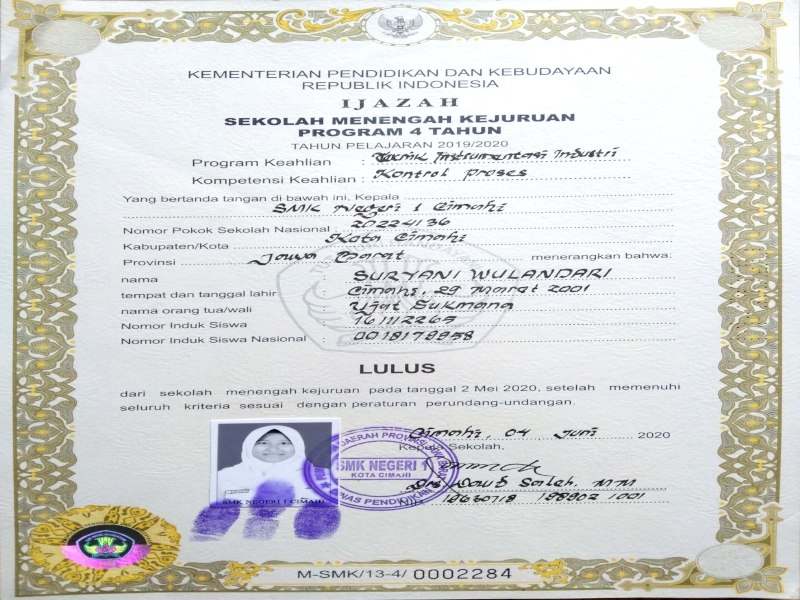 KEMENTERIAN PENDIDIKAN DAN KEBUDAYAAN
REPUBLIK INDONESIA
IJAZAH
SEKOLAH MENENGAH KEJURUAN
PROGRAM 4 TAHUN
TAHUN PELAJARAN 2019/2020
Program Keahlian : Teknik Instrumentasi Industri
Kompetensi Keahlian : Kontrol Proses
Yang bertanda tangan di bawah ini, Kepala
SMK Negeri 1 Cimahi
Nomor Pokok Sekolah Nasional 20224136
Kabupaten/Kota Kota Cimahi
Provinsi Jawa Barat menerangkan bahwa:
nama : SURYANI WULANDARI
tempat dan tanggal lahir : Cimahi, 29 Maret 2001
nama orang tua/wali : Ujat Sukmana
Nomor Induk Siswa : 161112265
Nomor Induk Siswa Nasional : 0018179958
LULUS
dari sekolah menengah kejuruan pada tanggal 2 Mei 2020, setelah memenuhi
seluruh kriteria sesuai dengan peraturan perundang-undangan.
Cimahi, 04 Juni 2020
Kepala Sekolah,
DAERAH PROVINSI
SMK NEGERI 1
KOTA CIMAHI
DINAS PENDIDIKAN
Drs. Daud Saleh, MM
NIP
SMK NEGERI 1 CIMAHI
M-SMK/13-4/ 0002284